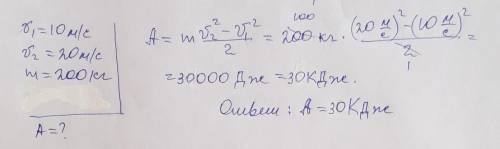 v₁ = 10 м/с
v₂ = 20 м/с
m = 200 кг
A = ?
A = m (v₂² - v₁²)/2 = 200 кг · ((20 м/с)² - (10 м/с)²)/2 =
100
1
= 30000 Дже = 30 КДже.
Ответ: A = 30 КДже